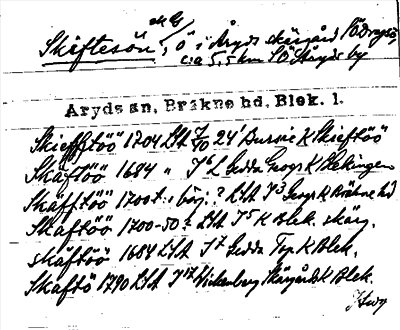 Skäftesön, ö i Åryds skärgård
ca 5,5 km SÖ Åryds by
Åryds sn, Bräkne hd, Blek. l.
Skiefftöö 1704 LSA 24 Bussie K Skieftöö
Skäftöö 1684 " J 6 L Gedda Geogr K Blekingen
Skäftöö 1700t. börj.? LSA J 3 Geogr K Bräkne hd
Skäftöö 1700-50? LSA J 5 K Blek. skärg.
Skäftöö 1684 LSA J 7 Gedda Top K Blek.
Skäftö 1790 LSA J 17 Wickenberg Skärgårds K Blek.